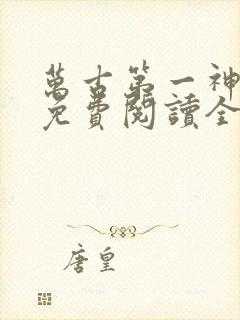 萬古第一神
免費閱讀全
唐皇